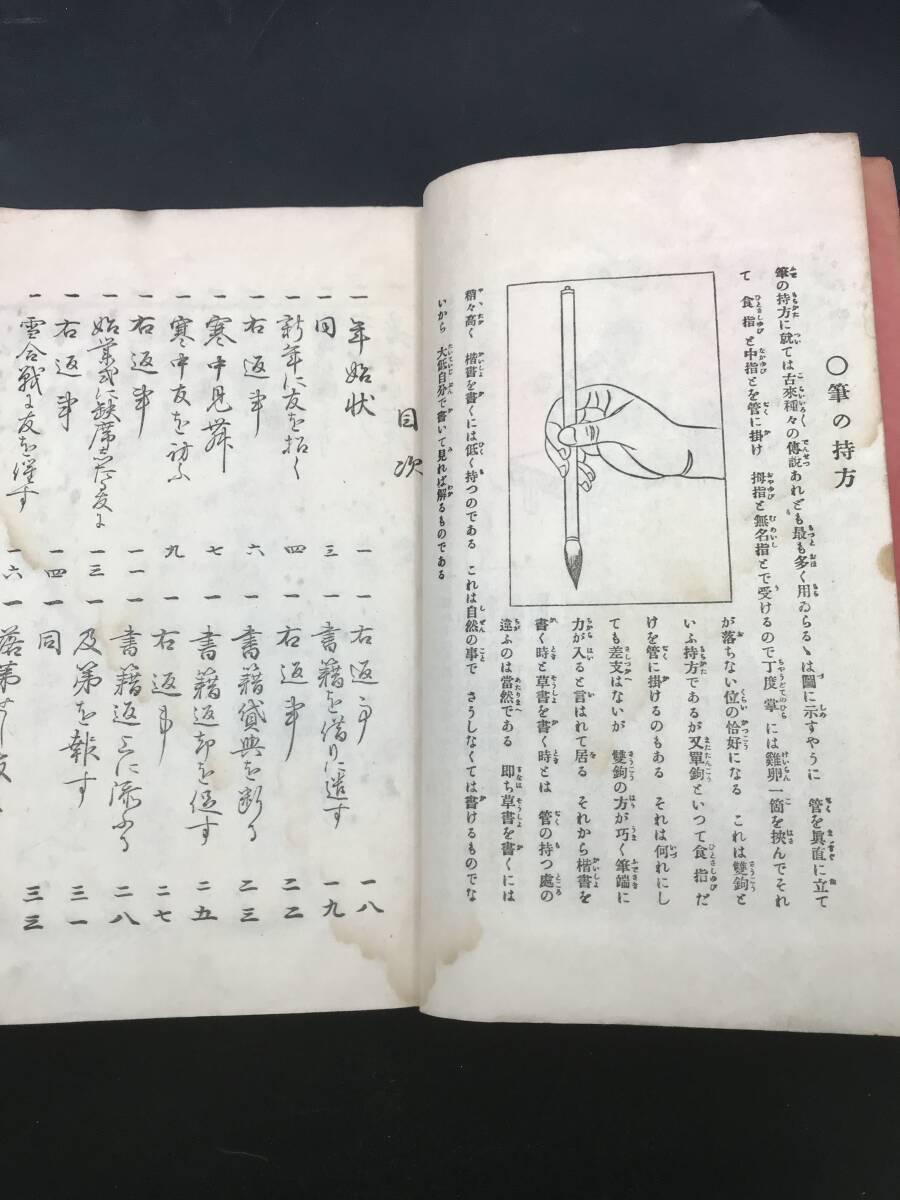 〇筆の持方
筆の持方に就ては古來種々の傳說あれども最も多く用ゐらるゝは圖に示すやうに 管を眞直に立て
て 食指と中指とを管に掛け 拇指と無名指とで受けるので丁度掌には雞卵一箇を挾んでそれ
が落ちない位の恰好になる これは雙鉤と
いふ持方であるが又單鉤といつて食指だ
けを管に掛けるのもある それは何れにし
ても差支はないが 雙鉤の方が巧く筆端に
力が入ると言はれて居る それから楷書を
書く時と草書を書く時とは 管の持つ處の
違ふのは當然である 卽ち草書を書くには
稍々高く 楷書を書くには低く持つのである これは自然の事で さうしなくては書けるものでな
いから 大低自分で書いて見れば解るものである
目次
一 年始状 一
一 同 三
一 新年に友を招く 四
一 右返事 六
一 寒中見舞 七
一 寒中友を訪ふ 九
一 右返事 一一
一 始業式に缺席したる友に 一三
一 右返事 一四
一 雪合戰に友を催す 一六
一 右返事 一八
一 書籍を借りに遣す 一九
一 右返事 二二
一 書籍貸與を斷る 二三
一 書籍返却を促す 二五
一 右返事 二七
一 書籍返上に添ふる 二八
一 及第を報す 三一
一 同 三三